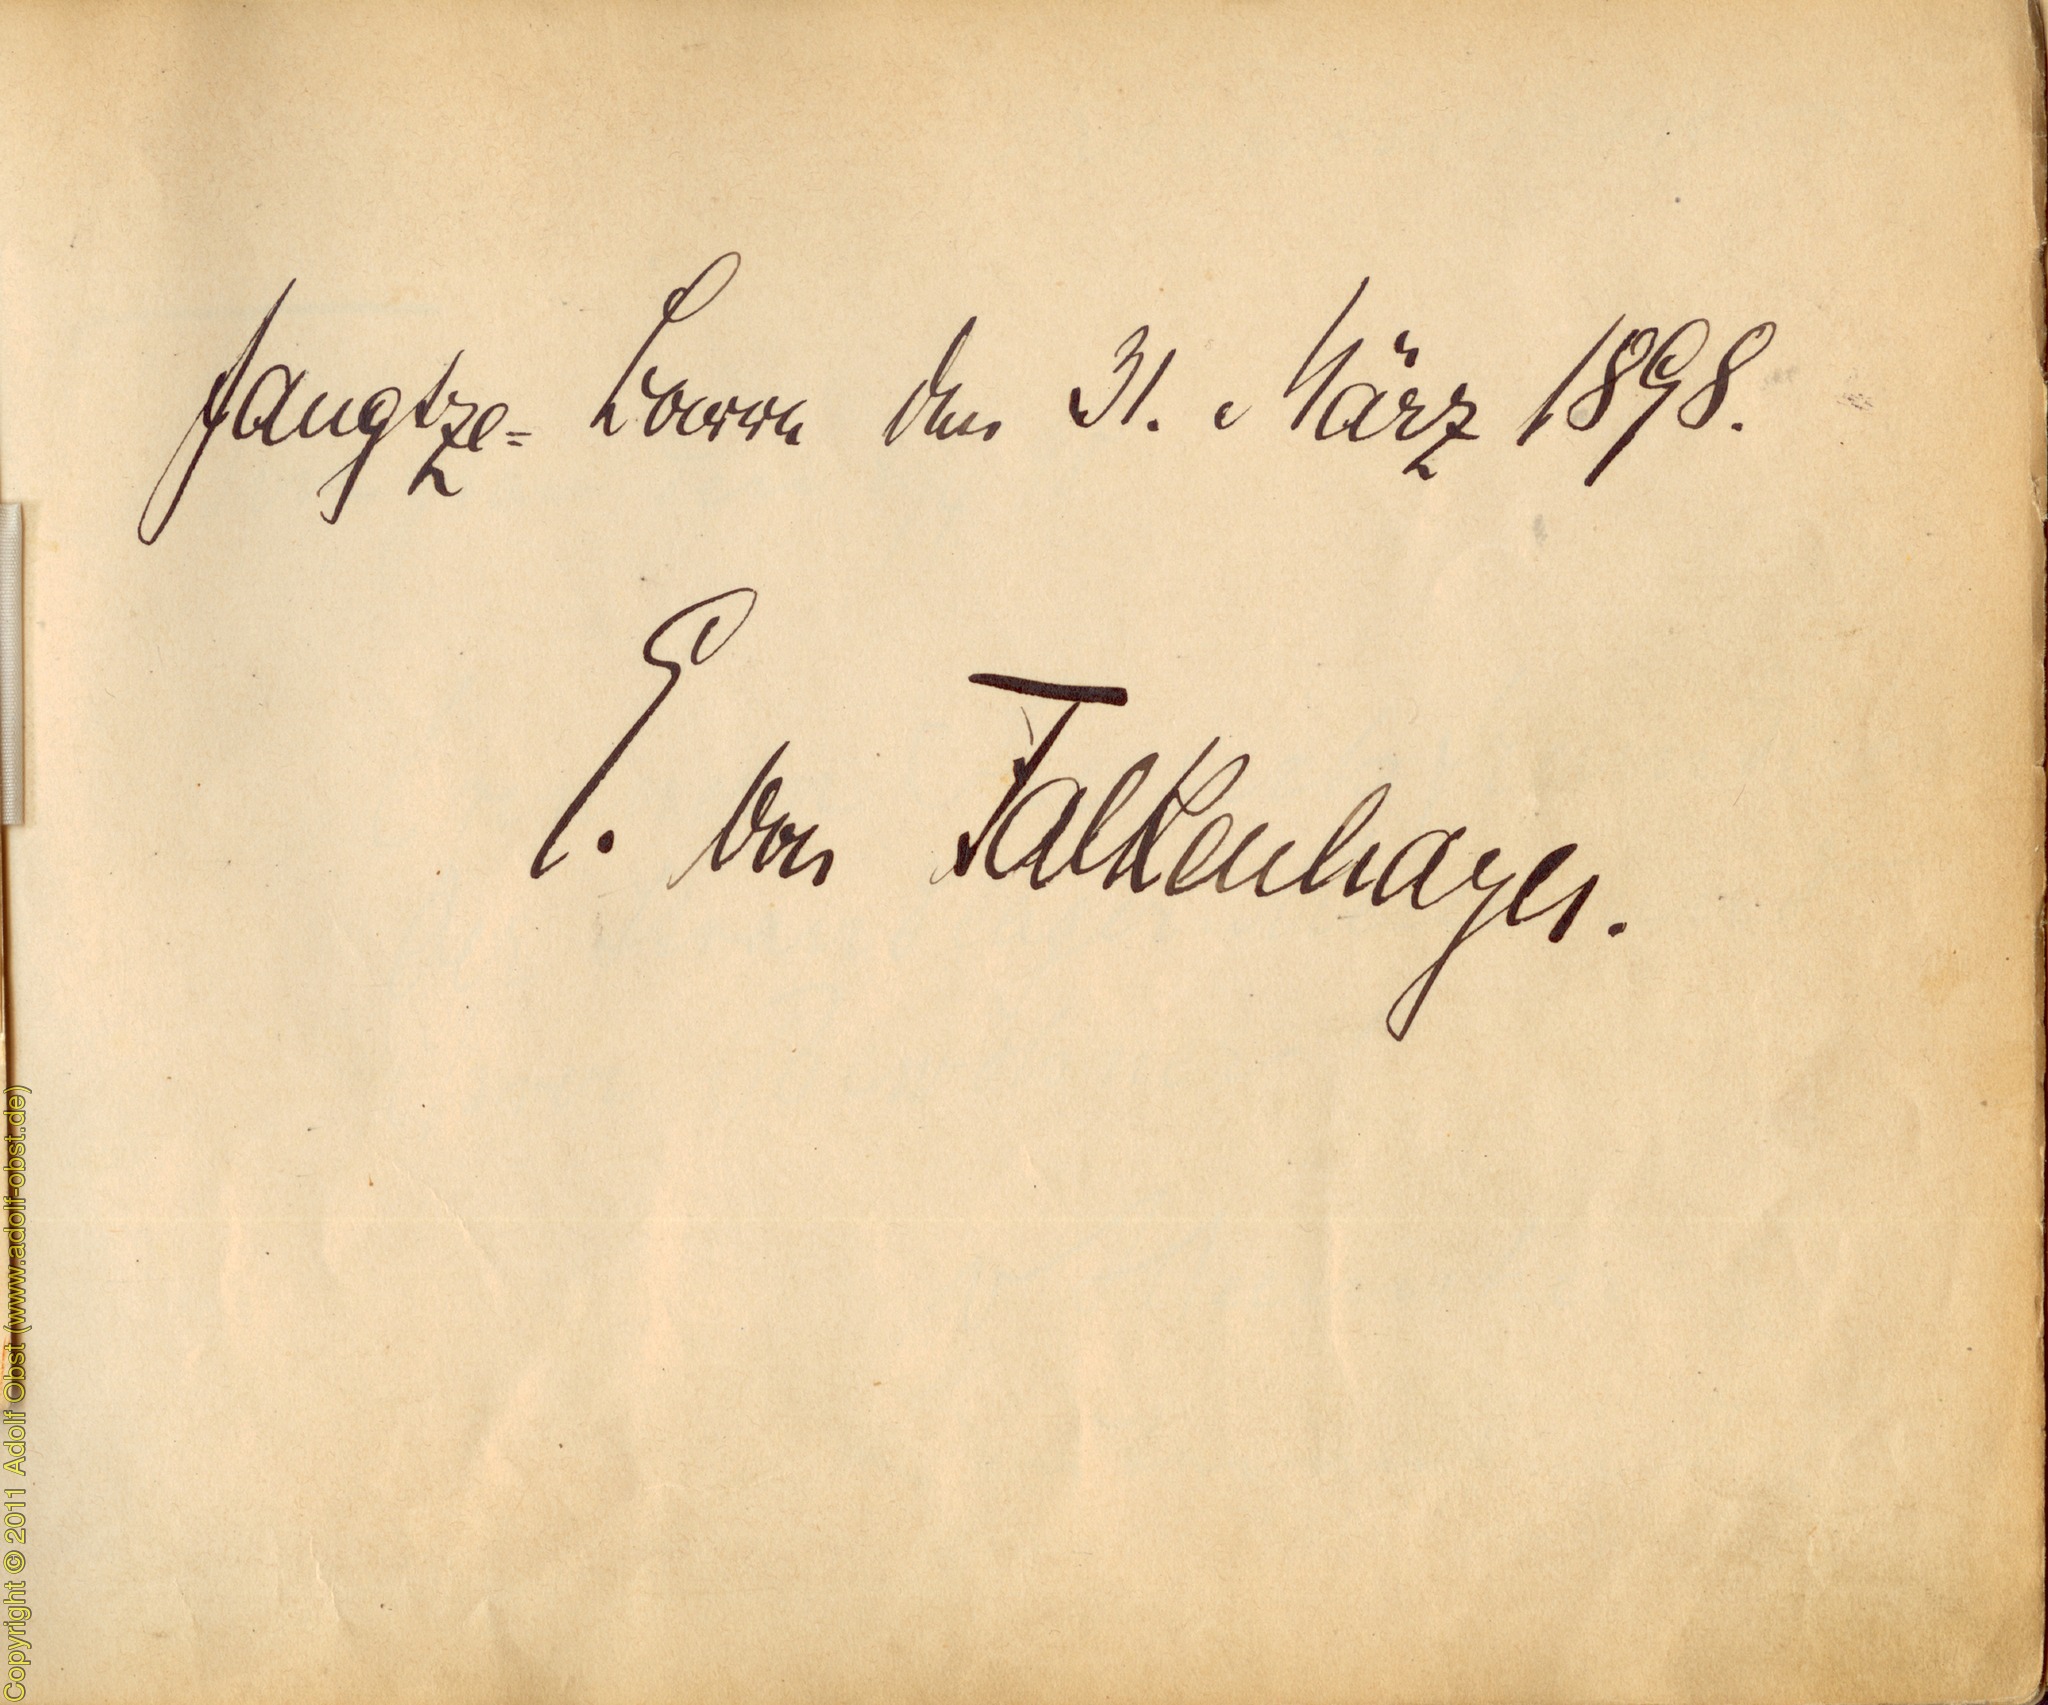 Jangtze- den 31. März 1898.
E. von Falkenhayn.
Copyright © 2011 Adolf Obst (www.adolf-obst.de)